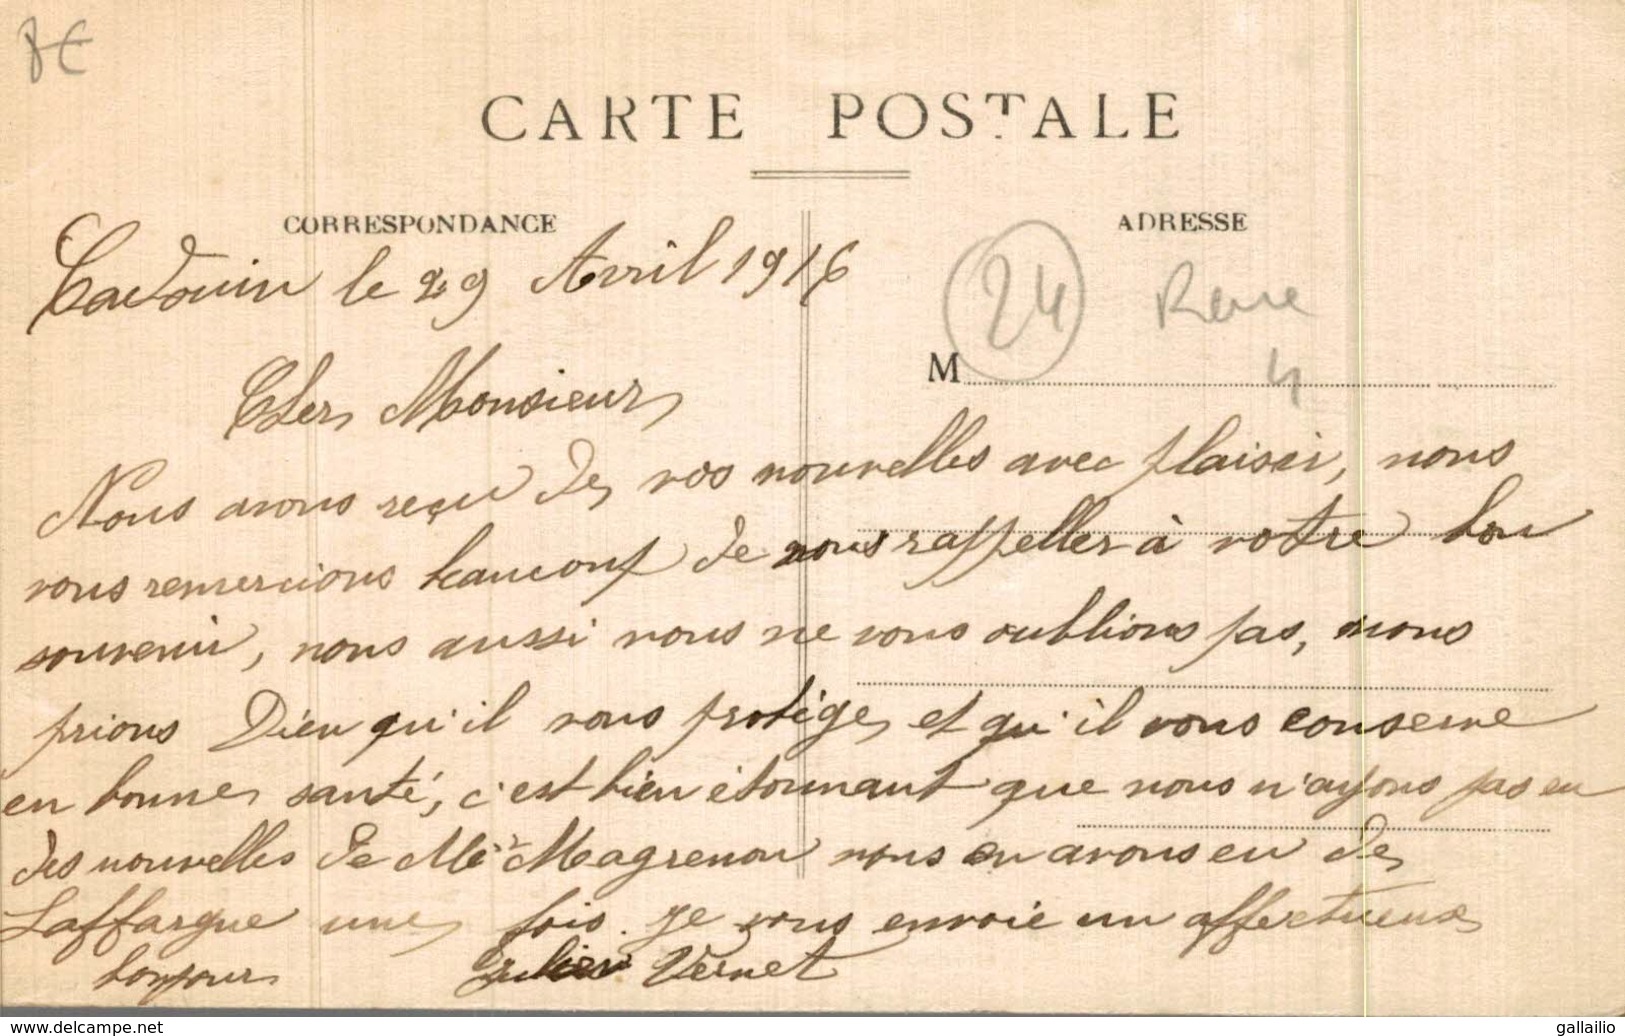 8€
CARTE POSTALE
CORRESPONDANCE
ADRESSE
Cadouin le 29 Avril 1916
24
M
4
Cher Monsieur
Nous avons reçu de vos nouvelles avec plaisir, nous
vous remercions beaucoup de nous rappeller à votre bon
souvenir, nous aussi nous ne vous oublions pas, nous
prions Dieu qu'il vous protège et qu'il vous conserve
en bonne santé, c'est bien étonnant que nous n'ayons pas eu
des nouvelles de Mr Magrenon nous en avons eu de
Laffargue une fois. Je vous envoie un affectueux
bonjour Vernet
www.delcampe.net
gallailio